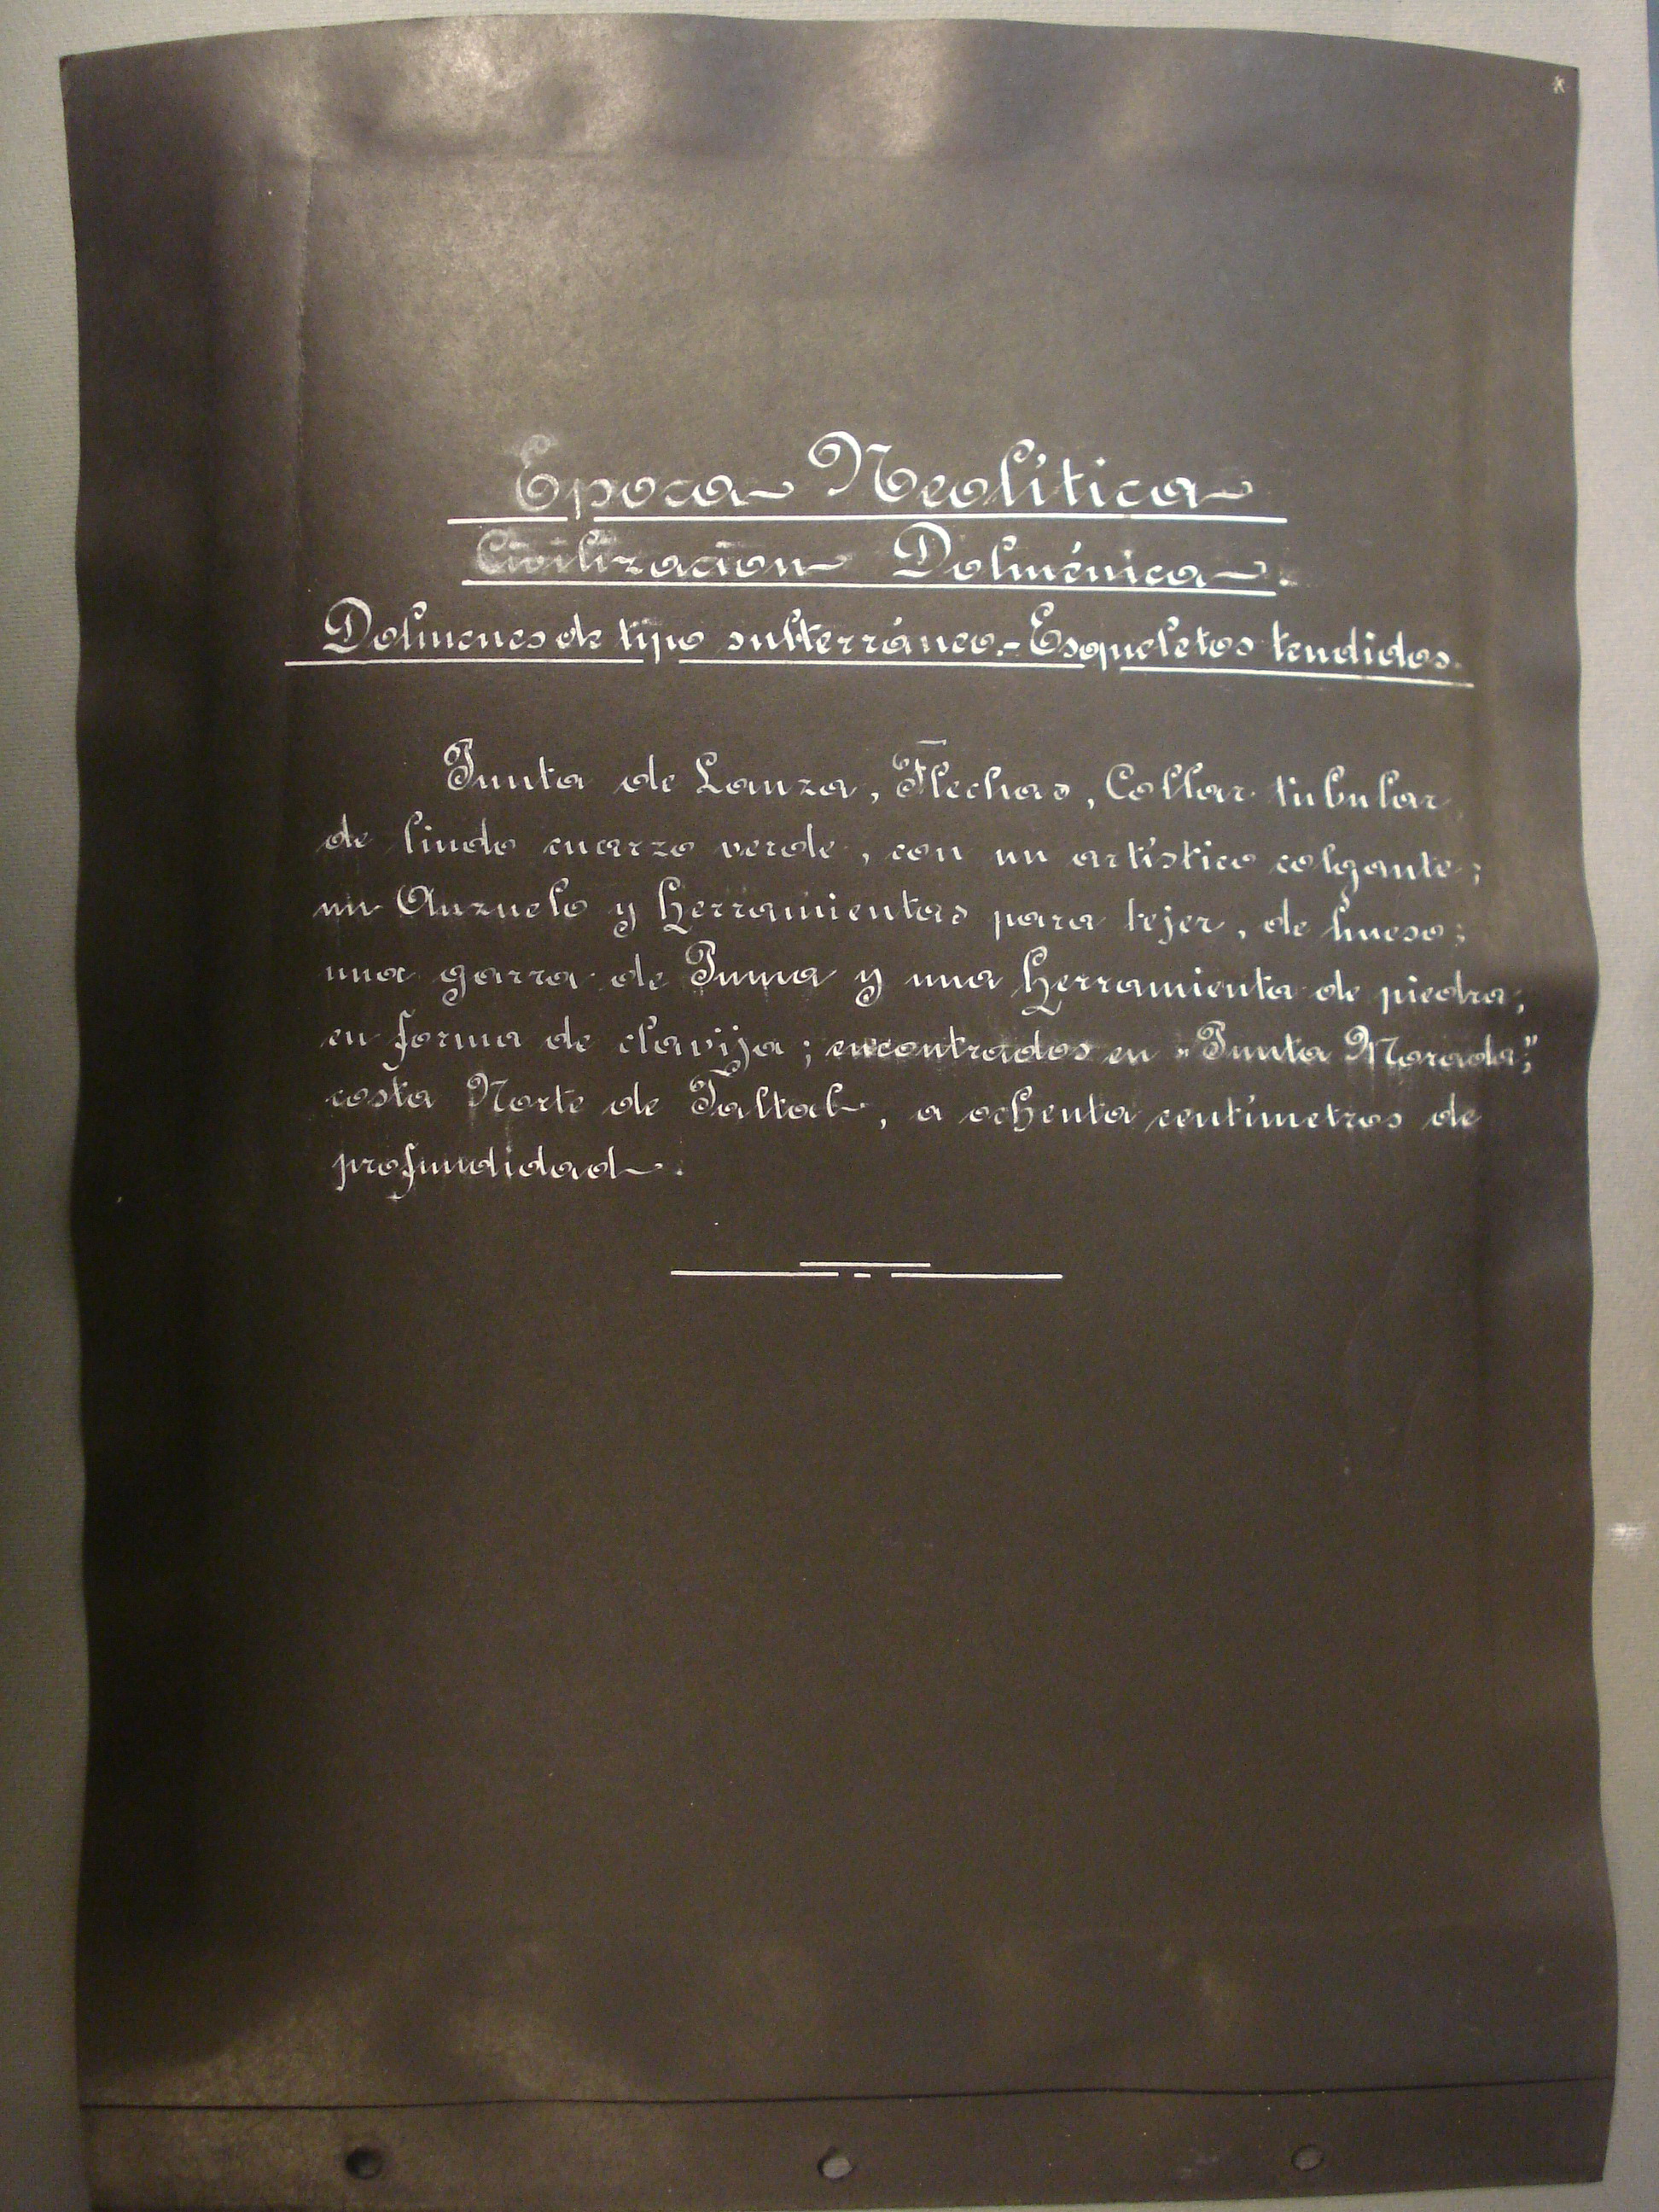 Epoca Neolítica
Civilizacion Dolménica.
Dolmenes de tipo subterráneo.- Esqueletos tendidos.
Punta de Lanza, Flechas, Collar tubular
de lindo cuarzo verde, con un artístico colgante;
un Anzuelo y herramientas para tejer, de hueso;
una garra de Puma y una herramienta de piedra,
en forma de clavija; encontrados en "Punta Morada,"
costa Norte de Taltal, a ochenta centímetros de
profundidad.